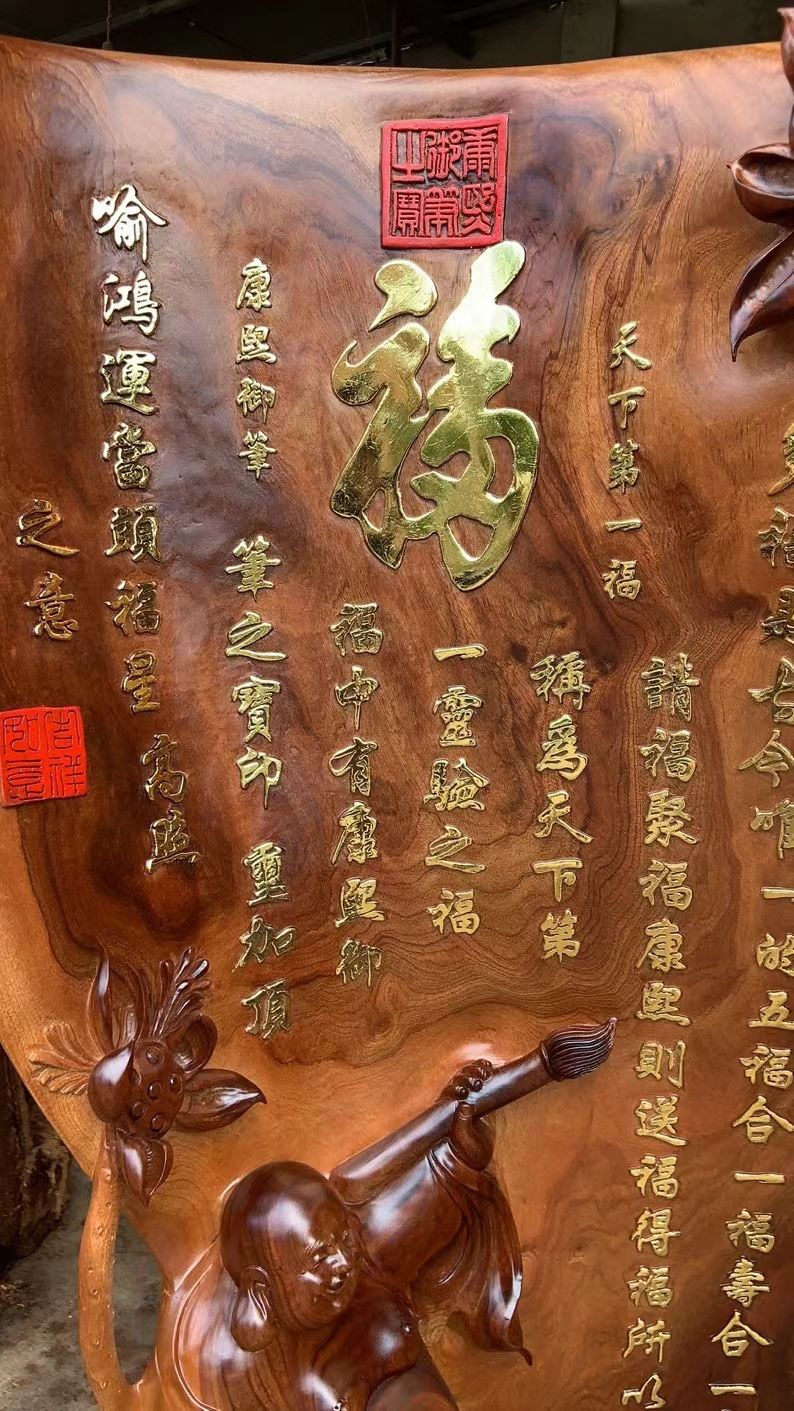 是古今唯一的五福合一福壽合一
請福聚福康熙則送福得福所以
天下第一福
稱為天下第
一靈驗之福
福中有康熙御
康熙御筆之寶
福
康熙御筆
筆之寶印 璽加頂
喻鴻運當頭福星高照
之意
吉祥如意